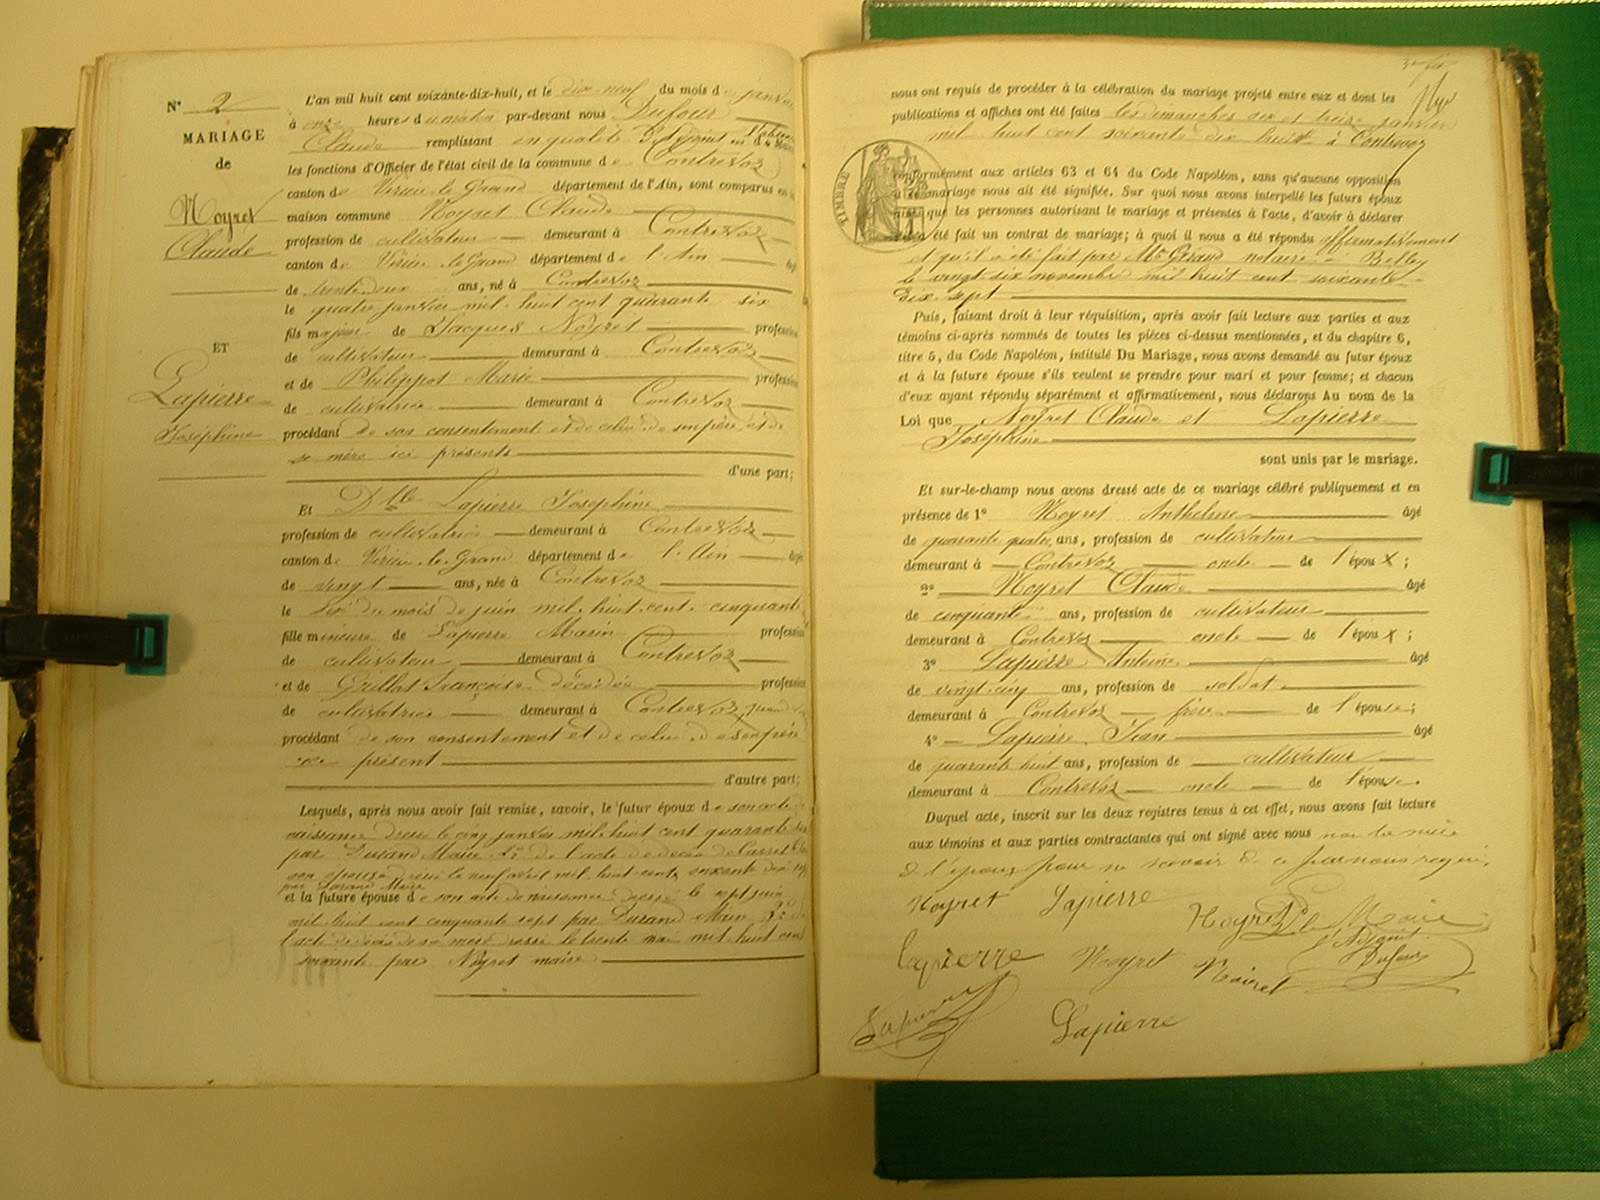 N° 2
MARIAGE
de
Noyret
Claude
ET
Lapierre
Joséphine
L'an mil huit cent soixante-dix-huit, et le dix neuf du mois de janvier
à onze heures du matin par-devant nous Dufour
Claude remplissant en qualité d'adjoint
les fonctions d'Officier de l'état civil de la commune de Contrevoz
canton de Virieu le Grand département de l'Ain, sont comparus en la
maison commune Noyret Claude
profession de cultivateur demeurant à Contrevoz
canton de Virieu le Grand département de l'Ain âgé
de trente deux ans, né à Contrevoz
le quatre janvier mil huit cent quarante six
fils majeur de Jacques Noyret profession
de cultivateur demeurant à Contrevoz
et de Philippot Marie profession
de cultivatrice demeurant à Contrevoz
procédant de son consentement et de celui de son père et de
sa mère ici présents
d'une part;
Et Dlle Lapierre Joséphine
profession de cultivatrice demeurant à Contrevoz
canton de Virieu le Grand département de l'Ain âgée
de vingt ans, née à Contrevoz
le six du mois de juin mil huit cent cinquante
fille mineure de Lapierre Marin profession
de cultivateur demeurant à Contrevoz
et de Grillot Françoise décédée profession
de cultivatrice demeurant à Contrevoz quand
procédant de son consentement et de celui de son père
ici présent
d'autre part;
Lesquels, après nous avoir fait remise, savoir, le futur époux de son acte de
naissance dressé le cinq janvier mil huit cent quarante six
par Durand Maire 2° de l'acte de décès de Carret
son épouse dressé le neuf avril mil huit cent soixante dix sept
par Durand Maire
et la future épouse de son acte de naissance dressé le sept juin
mil huit cent cinquante sept par Durand Maire 2° de
l'acte de décès de sa mère dressé le trente mai mil huit cent
soixante par Noyret maire
nous ont requis de procéder à la célébration du mariage projeté entre eux et dont les
publications et affiches ont été faites les dimanches six et treize janvier
mil huit cent soixante dix huit à Contrevoz
TIMBRE
conformément aux articles 63 et 64 du Code Napoléon, sans qu'aucune opposition
à ce mariage nous ait été signifiée. Sur quoi nous avons interpellé les futurs époux
ainsi que les personnes autorisant le mariage et présentes à l'acte, d'avoir à déclarer
s'il a été fait un contrat de mariage; à quoi il nous a été répondu affirmativement
et qu'il a été fait par Me Giraud notaire à Belley
le vingt six novembre mil huit cent soixante
dix sept
Puis, faisant droit à leur réquisition, après avoir fait lecture aux parties et aux
témoins ci-après nommés de toutes les pièces ci-dessus mentionnées, et du chapitre 6,
titre 5, du Code Napoléon, intitulé Du Mariage, nous avons demandé au futur époux
et à la future épouse s'ils veulent se prendre pour mari et pour femme; et chacun
d'eux ayant répondu séparément et affirmativement, nous déclarons Au nom de la
Loi que Noyret Claude et Lapierre
Joséphine
sont unis par le mariage.
Et sur-le-champ nous avons dressé acte de ce mariage célébré publiquement et en
présence de 1° Noyret Anthelme âgé
de quarante quatre ans, profession de cultivateur
demeurant à Contrevoz oncle de l'époux;
2° Noyret Claude âgé
de cinquante ans, profession de cultivateur
demeurant à Contrevoz oncle de l'époux;
3° Lapierre Antoine âgé
de vingt cinq ans, profession de soldat
demeurant à Contrevoz frère de l'épouse;
4° Lapierre Jean âgé
de quarante huit ans, profession de cultivateur
demeurant à Contrevoz oncle de l'épouse.
Duquel acte, inscrit sur les deux registres tenus à cet effet, nous avons fait lecture
aux témoins et aux parties contractantes qui ont signé avec nous non la mère
de l'époux pour ne savoir de ce par nous requis.
Noyret Lapierre Noyret P. le Maire
l'Adjoint
Lapierre Noyret Noiret Dufour
Lapierre Lapierre